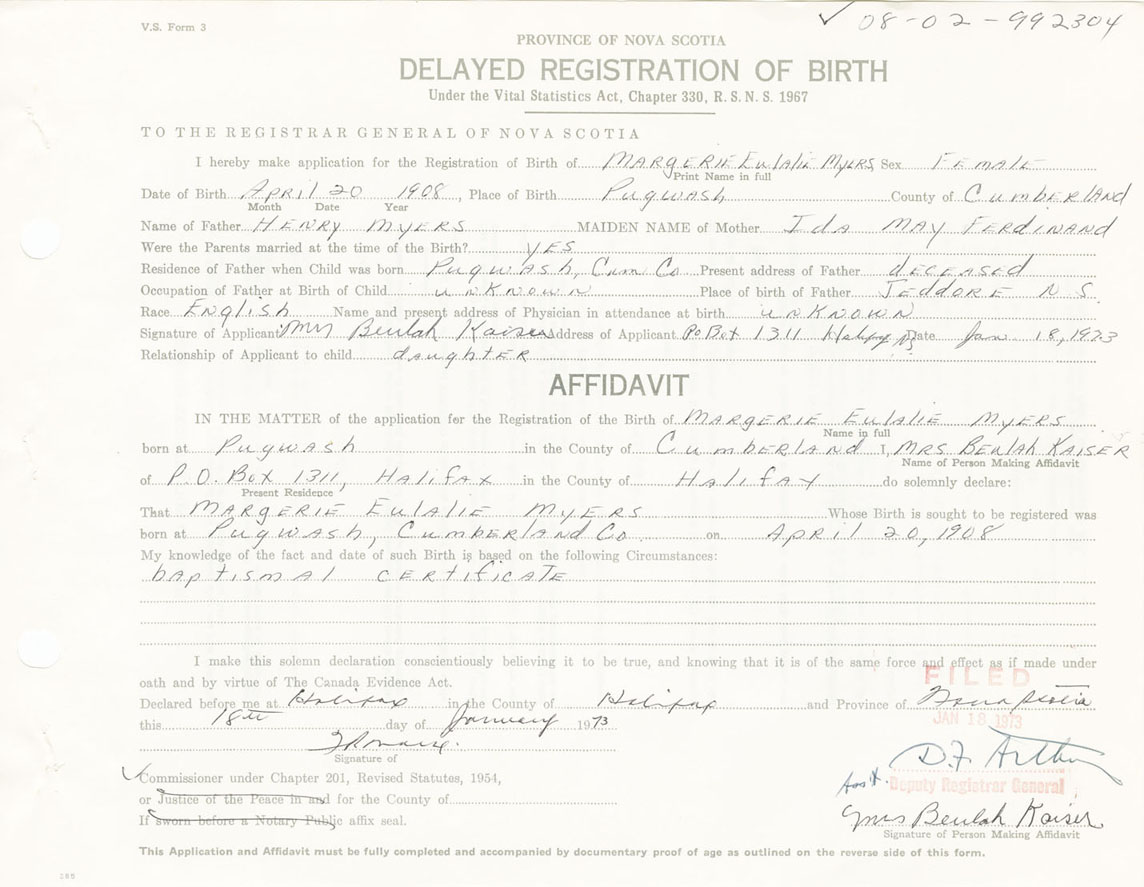 V.S. Form 3
✓ 08-02-992304
PROVINCE OF NOVA SCOTIA
DELAYED REGISTRATION OF BIRTH
Under the Vital Statistics Act, Chapter 330, R. S. N. S. 1967
TO THE REGISTRAR GENERAL OF NOVA SCOTIA
I hereby make application for the Registration of Birth of MARGERIE EULALIE MYERS Sex FEMALE
Print Name in full
Date of Birth April 20 1908, Place of Birth Pugwash County of CUMBERLAND
Month Date Year
Name of Father HENRY MYERS MAIDEN NAME of Mother Ida MAY FERDINAND
Were the Parents married at the time of the Birth? YES
Residence of Father when Child was born Pugwash, Cum Co Present address of Father deceased
Occupation of Father at Birth of Child unknown Place of birth of Father JEDDORE N S.
Race English Name and present address of Physician in attendance at birth unknown
Signature of Applicant Mrs Beulah Kaiser Address of Applicant PO Box 1311 Date Jan. 18, 1973
Relationship of Applicant to child daughter
AFFIDAVIT
IN THE MATTER of the application for the Registration of the Birth of MARGERIE EULALIE MYERS
Name in full
born at Pugwash in the County of CUMBERLAND I, MRS BEULAH KAISER
Name of Person Making Affidavit
of P.O. Box 1311, HALIFAX in the County of HALIFAX do solemnly declare:
Present Residence
That MARGERIE EULALIE MYERS Whose Birth is sought to be registered was
born at Pugwash, CUMBERLAND Co. on April 20, 1908
My knowledge of the fact and date of such Birth is based on the following Circumstances:
baptismal certificate
I make this solemn declaration conscientiously believing it to be true, and knowing that it is of the same force and effect as if made under
FILED
oath and by virtue of The Canada Evidence Act.
Declared before me at Halifax in the County of Halifax and Province of Nova Scotia
this 18th day of January 1973
JAN 18 1973
Signature of
D.F. Arthur
Commissioner under Chapter 201, Revised Statutes, 1954,
Asst. Deputy Registrar General
or Justice of the Peace in and for the County of
Mrs Beulah Kaiser
If sworn before a Notary Public affix seal.
Signature of Person Making Affidavit
This Application and Affidavit must be fully completed and accompanied by documentary proof of age as outlined on the reverse side of this form.